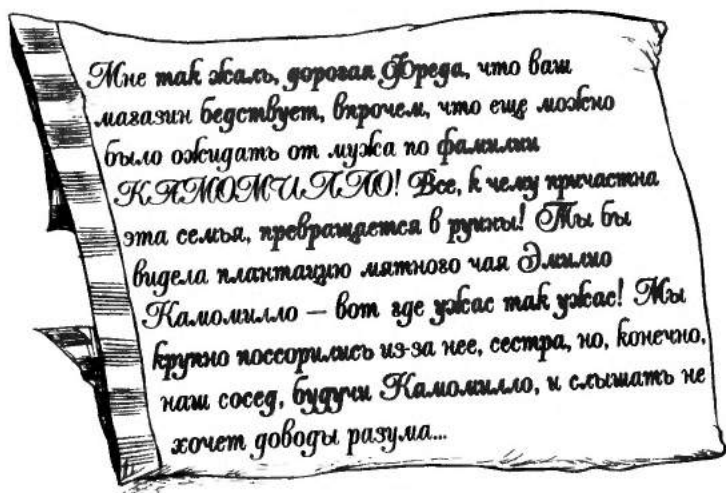 Мне так жаль, дорогая Фреда, что ваш
магазин бедствует, впрочем, что еще можно
было ожидать от мужа по фамилии
КАМОМИЛЛО! Все, к чему причастна
эта семья, превращается в руины! Ты бы
видела плантацию мятного чая Эмилио
Камомилло — вот где ужас так ужас! Мы
крупно поссорились из-за нее, сестра, но, конечно,
наш сосед, будучи Камомилло, и слышать не
хочет доводы разума...